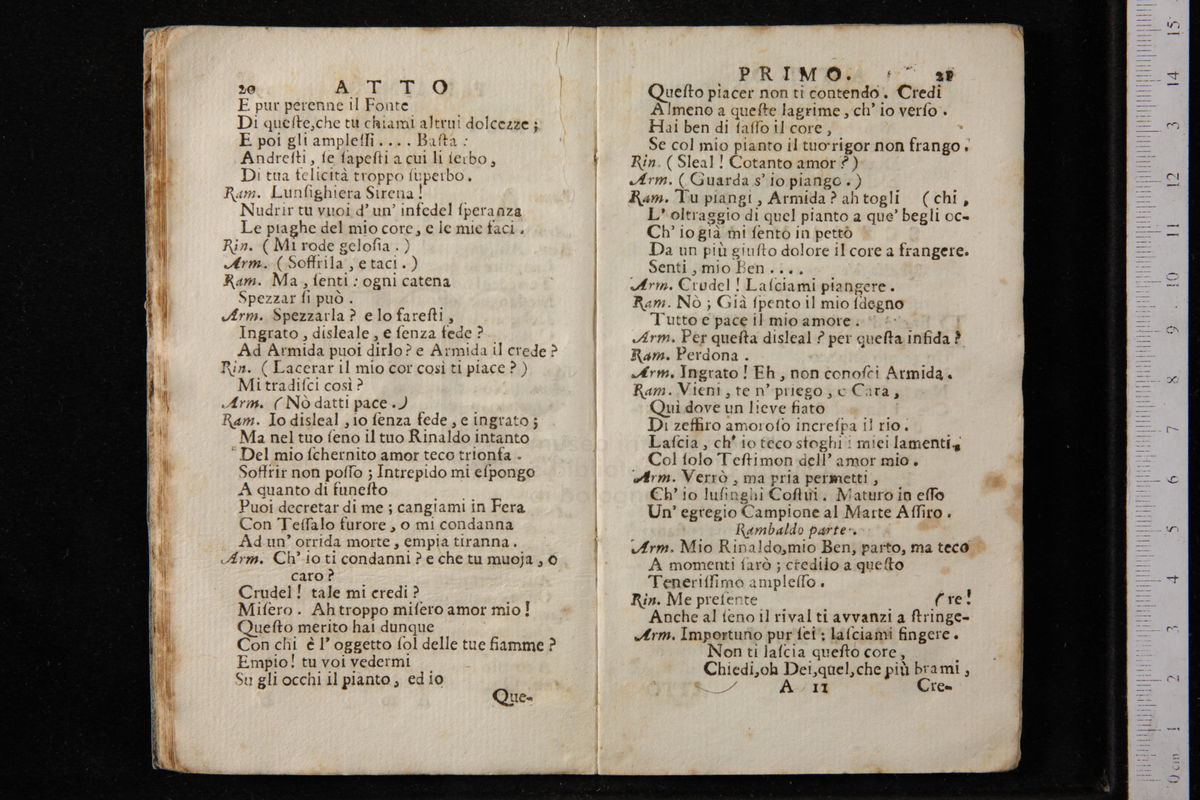 20 ATTO
E pur perenne il Fonte
Di queſte,che tu chiami altrui dolcezze ;
E poi gli ampleſſi .... Baſta :
Andreſti, ſe ſapeſti a cui li ſerbo,
Di tua felicità troppo ſuperbo.
Ram. Lunſighiera Sirena !
Nudrir tu vuoi d' un' infedel ſperanza
Le piaghe del mio core, e le mie faci.
Rin. ( Mi rode geloſia . )
Arm. ( Soffrila , e taci . )
Ram. Ma , ſenti : ogni catena
Spezzar ſi può .
Arm. Spezzarla ? e lo fareſti ,
Ingrato , disleale , e ſenza fede ?
Ad Armida puoi dirlo ? e Armida il crede ?
Rin. ( Lacerar il mio cor cosi ti piace ? )
Mi tradiſci così ?
Arm. ( Nò datti pace . )
Ram. Io disleal , io ſenza fede , e ingrato ;
Ma nel tuo ſeno il tuo Rinaldo intanto
Del mio ſchernito amor teco trionfa .
Soffrir non poſſo ; Intrepido mi eſpongo
A quanto di funeſto
Puoi decretar di me ; cangiami in Fera
Con Teſſalo furore , o mi condanna
Ad un' orrida morte , empia tiranna .
Arm. Ch' io ti condanni ? e che tu muoja , o
caro ?
Crudel ! tale mi credi ?
Miſero . Ah troppo miſero amor mio !
Queſto merito hai dunque
Con chi è l' oggetto ſol delle tue fiamme ?
Empio ! tu voi vedermi
Su gli occhi il pianto , ed io
Que-
PRIMO. 21
Queſto piacer non ti contendo . Credi
Almeno a queſte lagrime , ch' io verſo .
Hai ben di ſaſſo il core ,
Se col mio pianto il tuo rigor non frango .
Rin. ( Sleal ! Cotanto amor ? )
Arm. ( Guarda s' io piango . )
Ram. Tu piangi , Armida ? ah togli ( chi ,
L' oltraggio di quel pianto a que' begli oc-
Ch' io già mi ſento in petto
Da un più giuſto dolore il core a frangere.
Senti , mio Ben ....
Arm. Crudel ! Laſciami piangere .
Ram. Nò ; Già ſpento il mio ſdegno
Tutto e pace il mio amore .
Arm. Per queſta disleal ? per queſta infida ?
Ram. Perdona .
Arm. Ingrato ! Eh , non conoſci Armida .
Ram. Vieni , te n' priego , o Cara ,
Qui dove un lieve fiato
Di zeffiro amoroſo increſpa il rio .
Laſcia , ch' io teco sfoghi i miei lamenti ,
Col ſolo Teſtimon dell' amor mio .
Arm. Verrò , ma pria permetti ,
Ch' io luſinghi Coſtui . Maturo in eſſo
Un' egregio Campione al Marte Aſſiro .
Rambaldo parte .
Arm. Mio Rinaldo,mio Ben, parto, ma teco
A momenti ſarò ; credilo a queſto
Teneriſſimo ampleſſo .
Rin. Me preſente ( re !
Anche al ſeno il rival ti avvanzi a ſtringe-
Arm. Importuno pur ſei ; laſciami fingere .
Non ti laſcia queſto core ,
Chiedi,oh Dei,quel,che più brami ,
A 11 Cre-